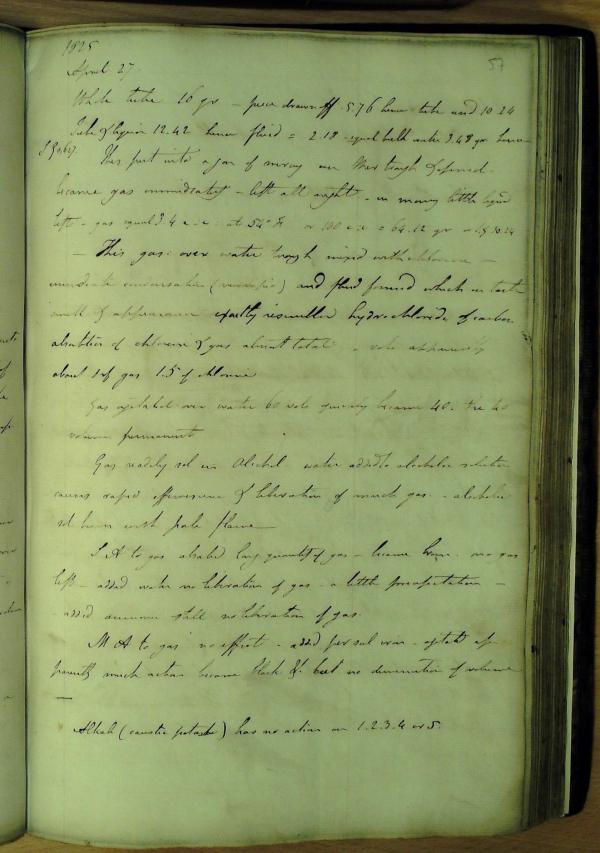 1825
57
April 27.
Whole tube 16 gr - piece drawn off 5.76 hence tube used 10.24
Tube & liquor 12.42 hence fluid = 2.18 - equal bulk water 3.48 gr hence
This put into a jar of mercury over Mer trough &
became gas immediately - left all night - on mercy little liquid
left - gas equal 3.4 c.c. at 54° F or 100 c.c. =
- This gas over water trough mixed with chlorine -
immediate condensation and fluid formed which in taste
smell & appearance exactly resembled hydrochloride of carbon
of chlorine & gas almost total - vols apparently
about 1 of gas 1.5 of chlorine
Gas agitated over water 60 vols quickly became 40. the 40
volumes permanent
Gas readily sol in Alcohol. water added to alcoholic solution
causes rapid effervescence & liberation of much gas - alcoholic
sol burns with pale flame
S A to gas absorbed large quantity of gas - became brown - no gas
left - added water no liberation of gas - a little precipitation -
- added ammonia still no liberation of gas.
M A to gas no effect - added per sul iron - agitated ap
parently much action became black &c but no diminution of volume
Alkali (caustic potash) has no action on 1.2.3.4 or 5.